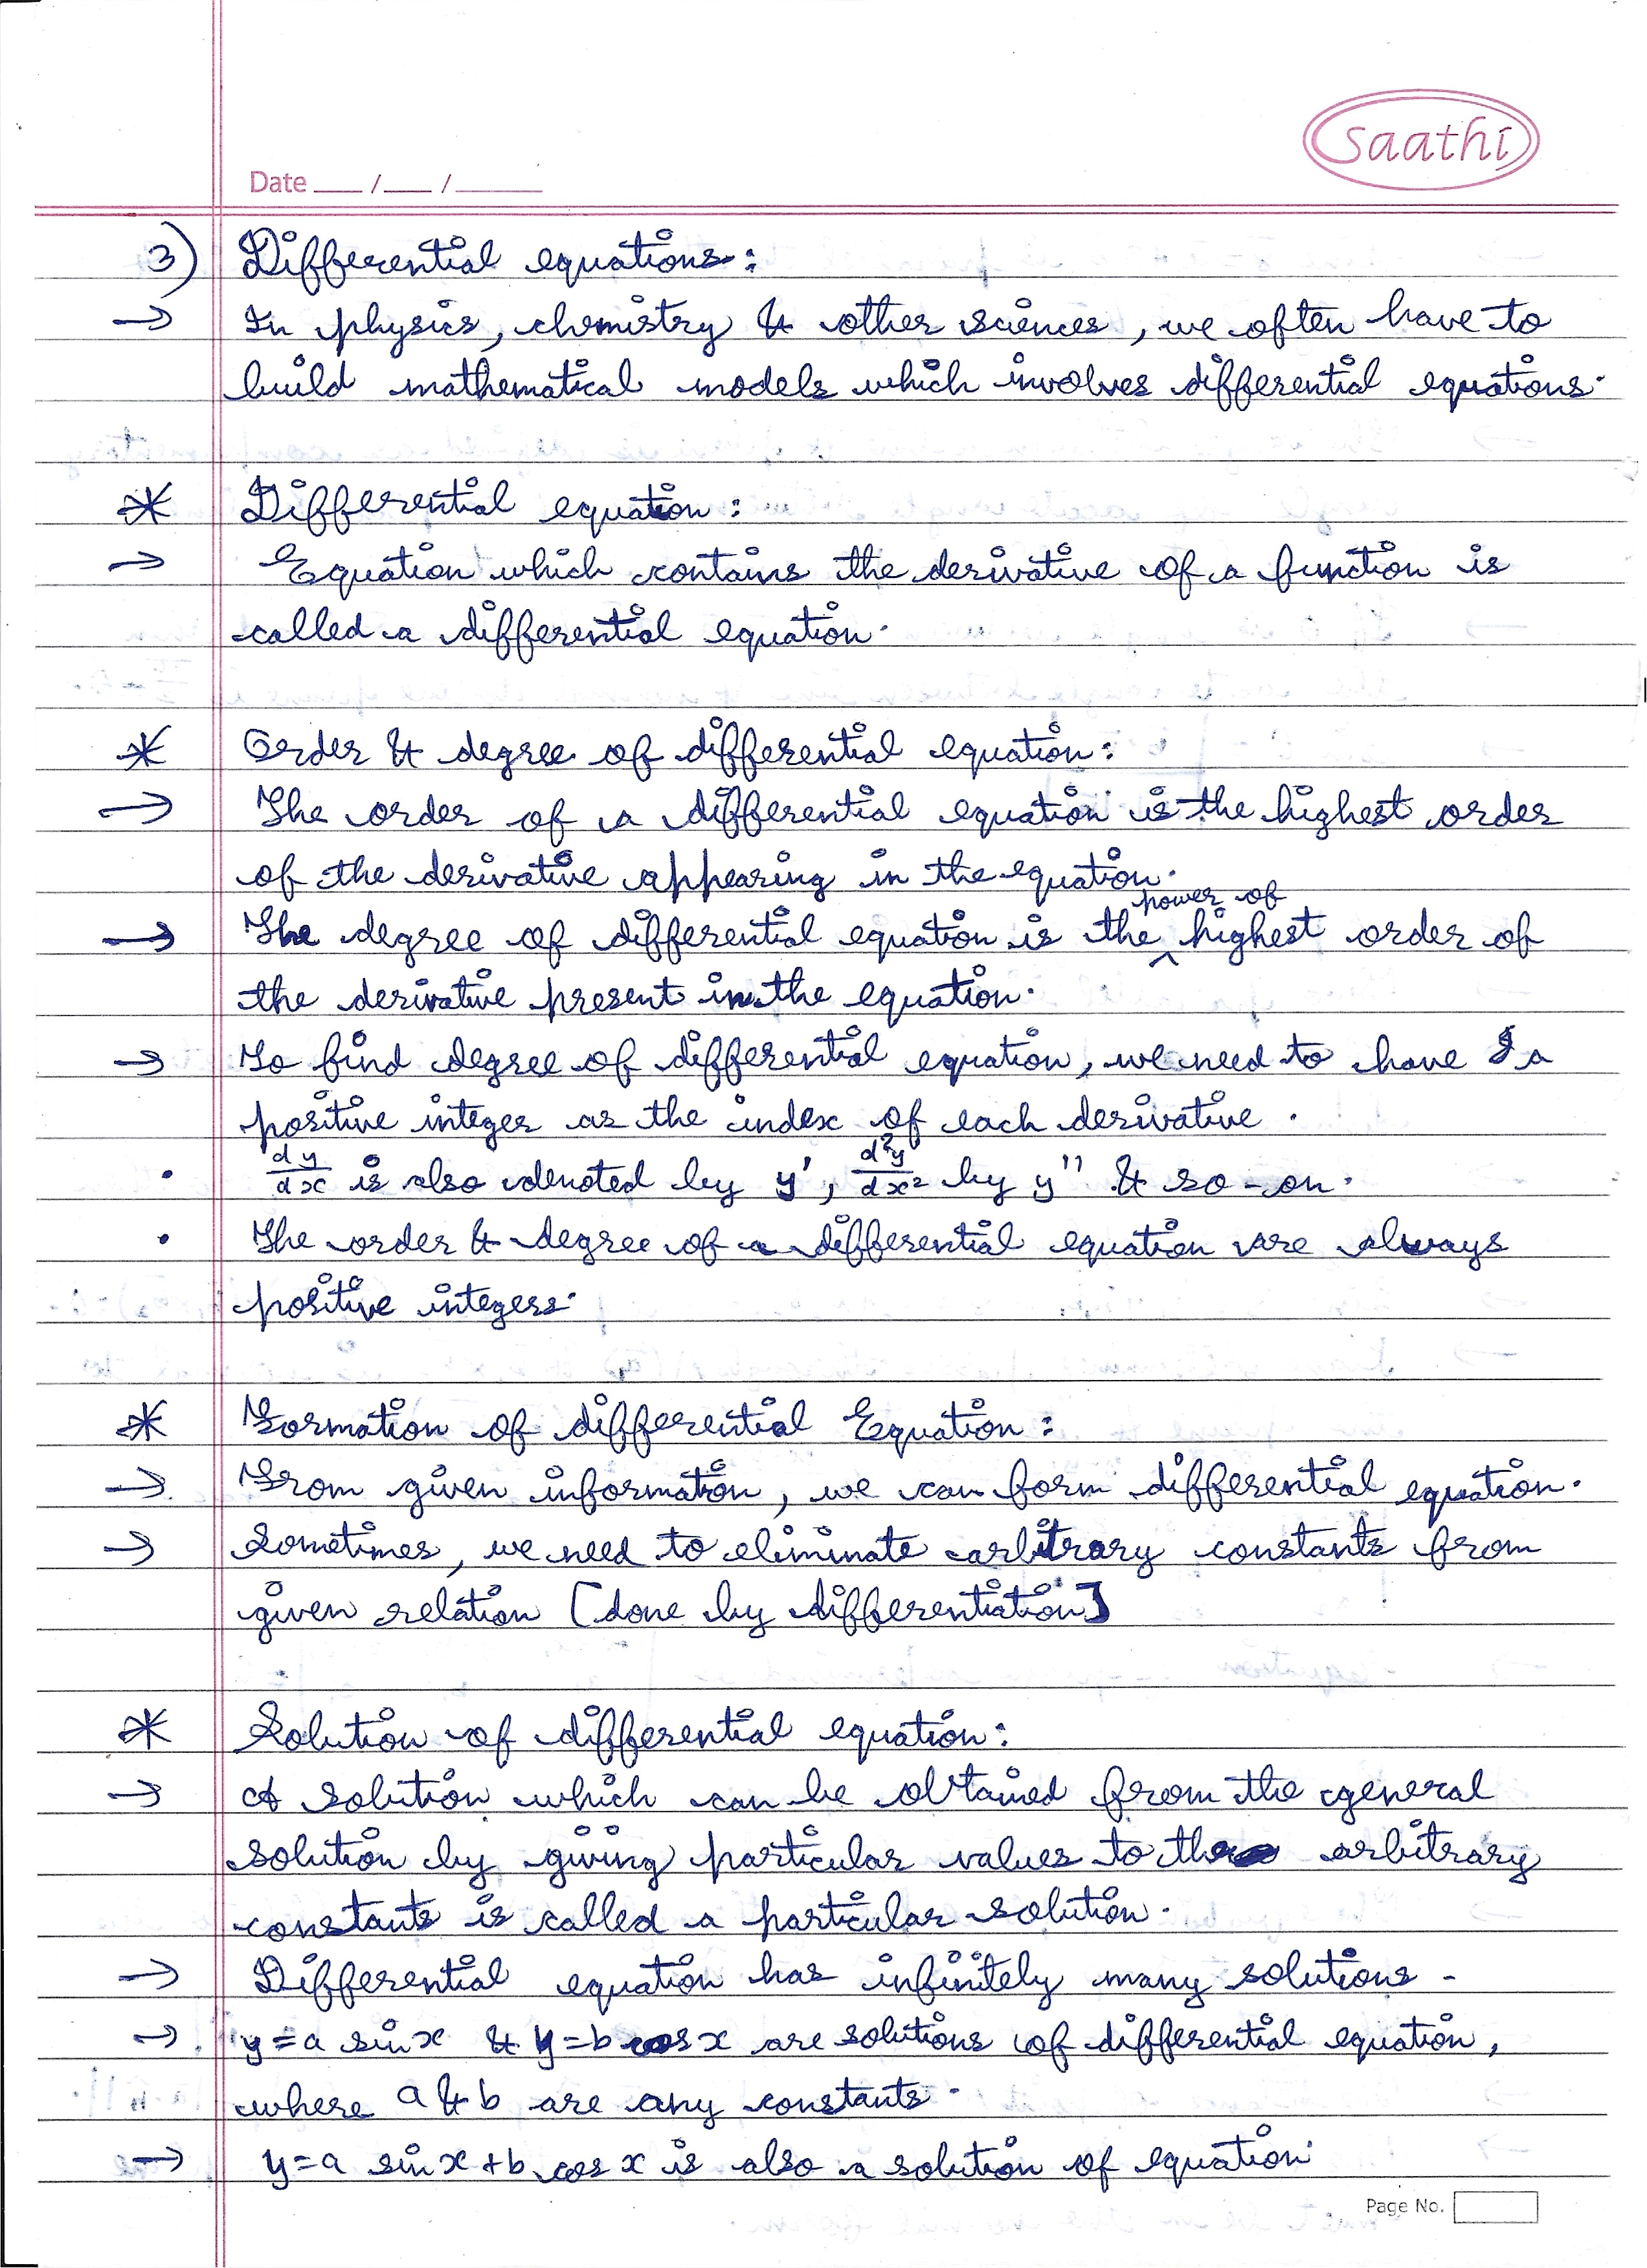 saathi
Date ___ / ___ / ______
3) Differential equations:
→ In physics, chemistry & other sciences, we often have to
build mathematical models which involves differential equations.
* Differential equation:
→ Equation which contains the derivative of a function is
called a differential equation.
* Order & degree of differential equation:
→ The order of a differential equation is the highest order
of the derivative appearing in the equation.
→ The degree of differential equation is the ^ power of highest order of
the derivative present in the equation.
→ To find degree of differential equation, we need to have a
positive integer as the index of each derivative.
• dy/dx is also denoted by y', d²y/dx² by y'' & so-on.
• The order & degree of a differential equation are always
positive integers.
* Formation of differential Equation:
→ From given information, we can form differential equation.
→ Sometimes, we need to eliminate arbitrary constants from
given relation [done by differentiation]
* Solution of differential equation:
→ A solution which can be obtained from the general
solution by giving particular values to the arbitrary
constants is called a particular solution.
→ Differential equation has infinitely many solutions.
→ y=a sin x & y=b cos x are solutions of differential equation,
where a & b are any constants.
→ y=a sin x + b cos x is also a solution of equation.
Page No.